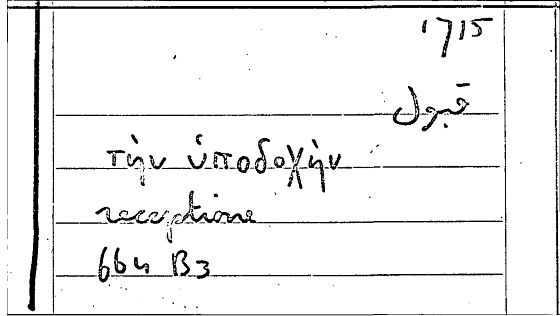 1715
قبول
τὴν ὑποδοχὴν
receptione
664 B3